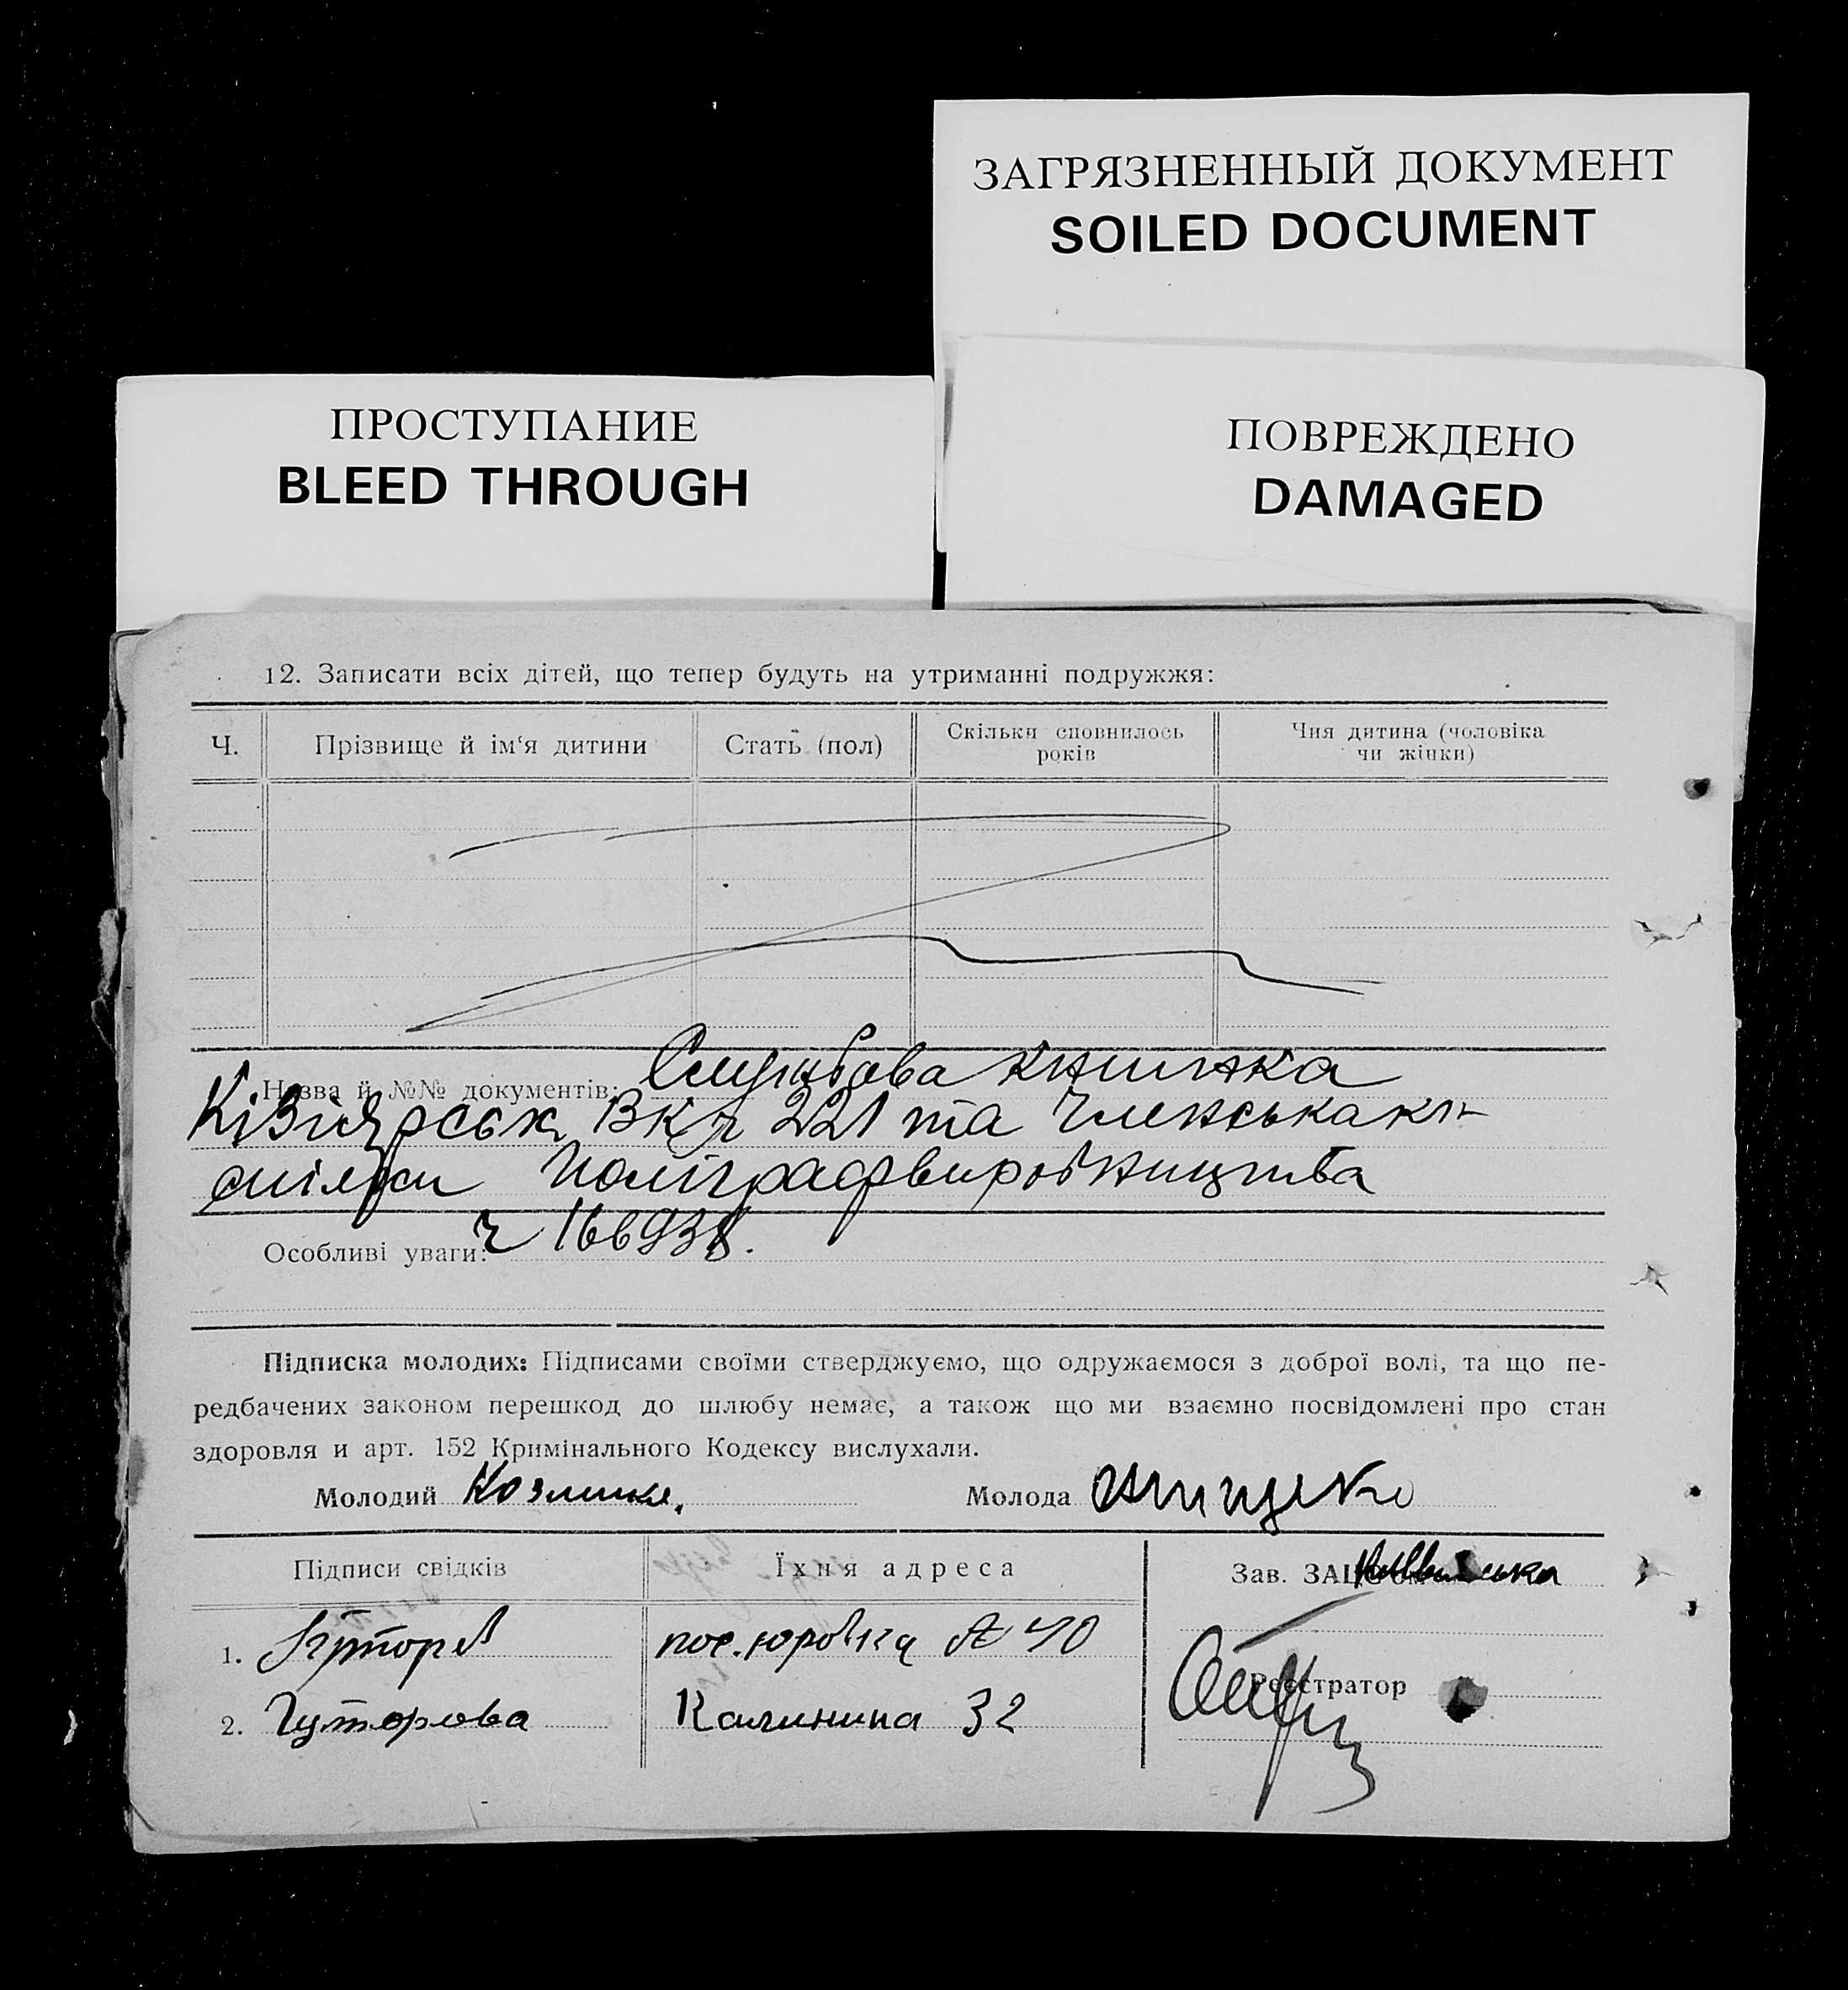 ЗАГРЯЗНЕННЫЙ ДОКУМЕНТ
SOILED DOCUMENT
ПРОСТУПАНИЕ
BLEED THROUGH
ПОВРЕЖДЕНО
DAMAGED
12. Записати всіх дітей, що тепер будуть на утриманні подружжя:
Ч.
Прізвище й ім‘я дитини
Стать (пол)
Скільки сповнилось
років
Чия дитина (чоловіка
чи жінки)
Назва й №№ документів: Службова книжка
221 та членська кн
спілки Поліграфвиробництва
ч 166938.
Особливі уваги:
Підписка молодих: Підписами своїми стверджуємо, що одружаємося з доброї волі, та що пе-
редбачених законом перешкод до шлюбу немає, а також що ми взаємно посвідомлені про стан
здоровля и арт. 152 Кримінального Кодексу вислухали.
Молодий
Молода
Підписи свідків
Їхня адреса
Зав. ЗАЦС'ом
1.
пос. Юровка № 40
2. Гуторова
Калинина 32
Реєстратор